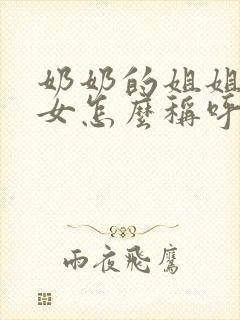 奶奶的姐姐
女怎麼稱呼
雨夜飛鷹